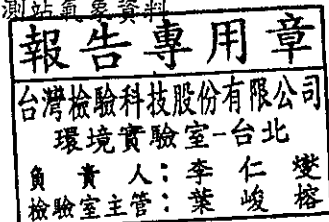 測站氣象資料
報告專用章
台灣檢驗科技股份有限公司
環境實驗室-台北
負責人：李仁燮
檢驗室主管：葉峻榕